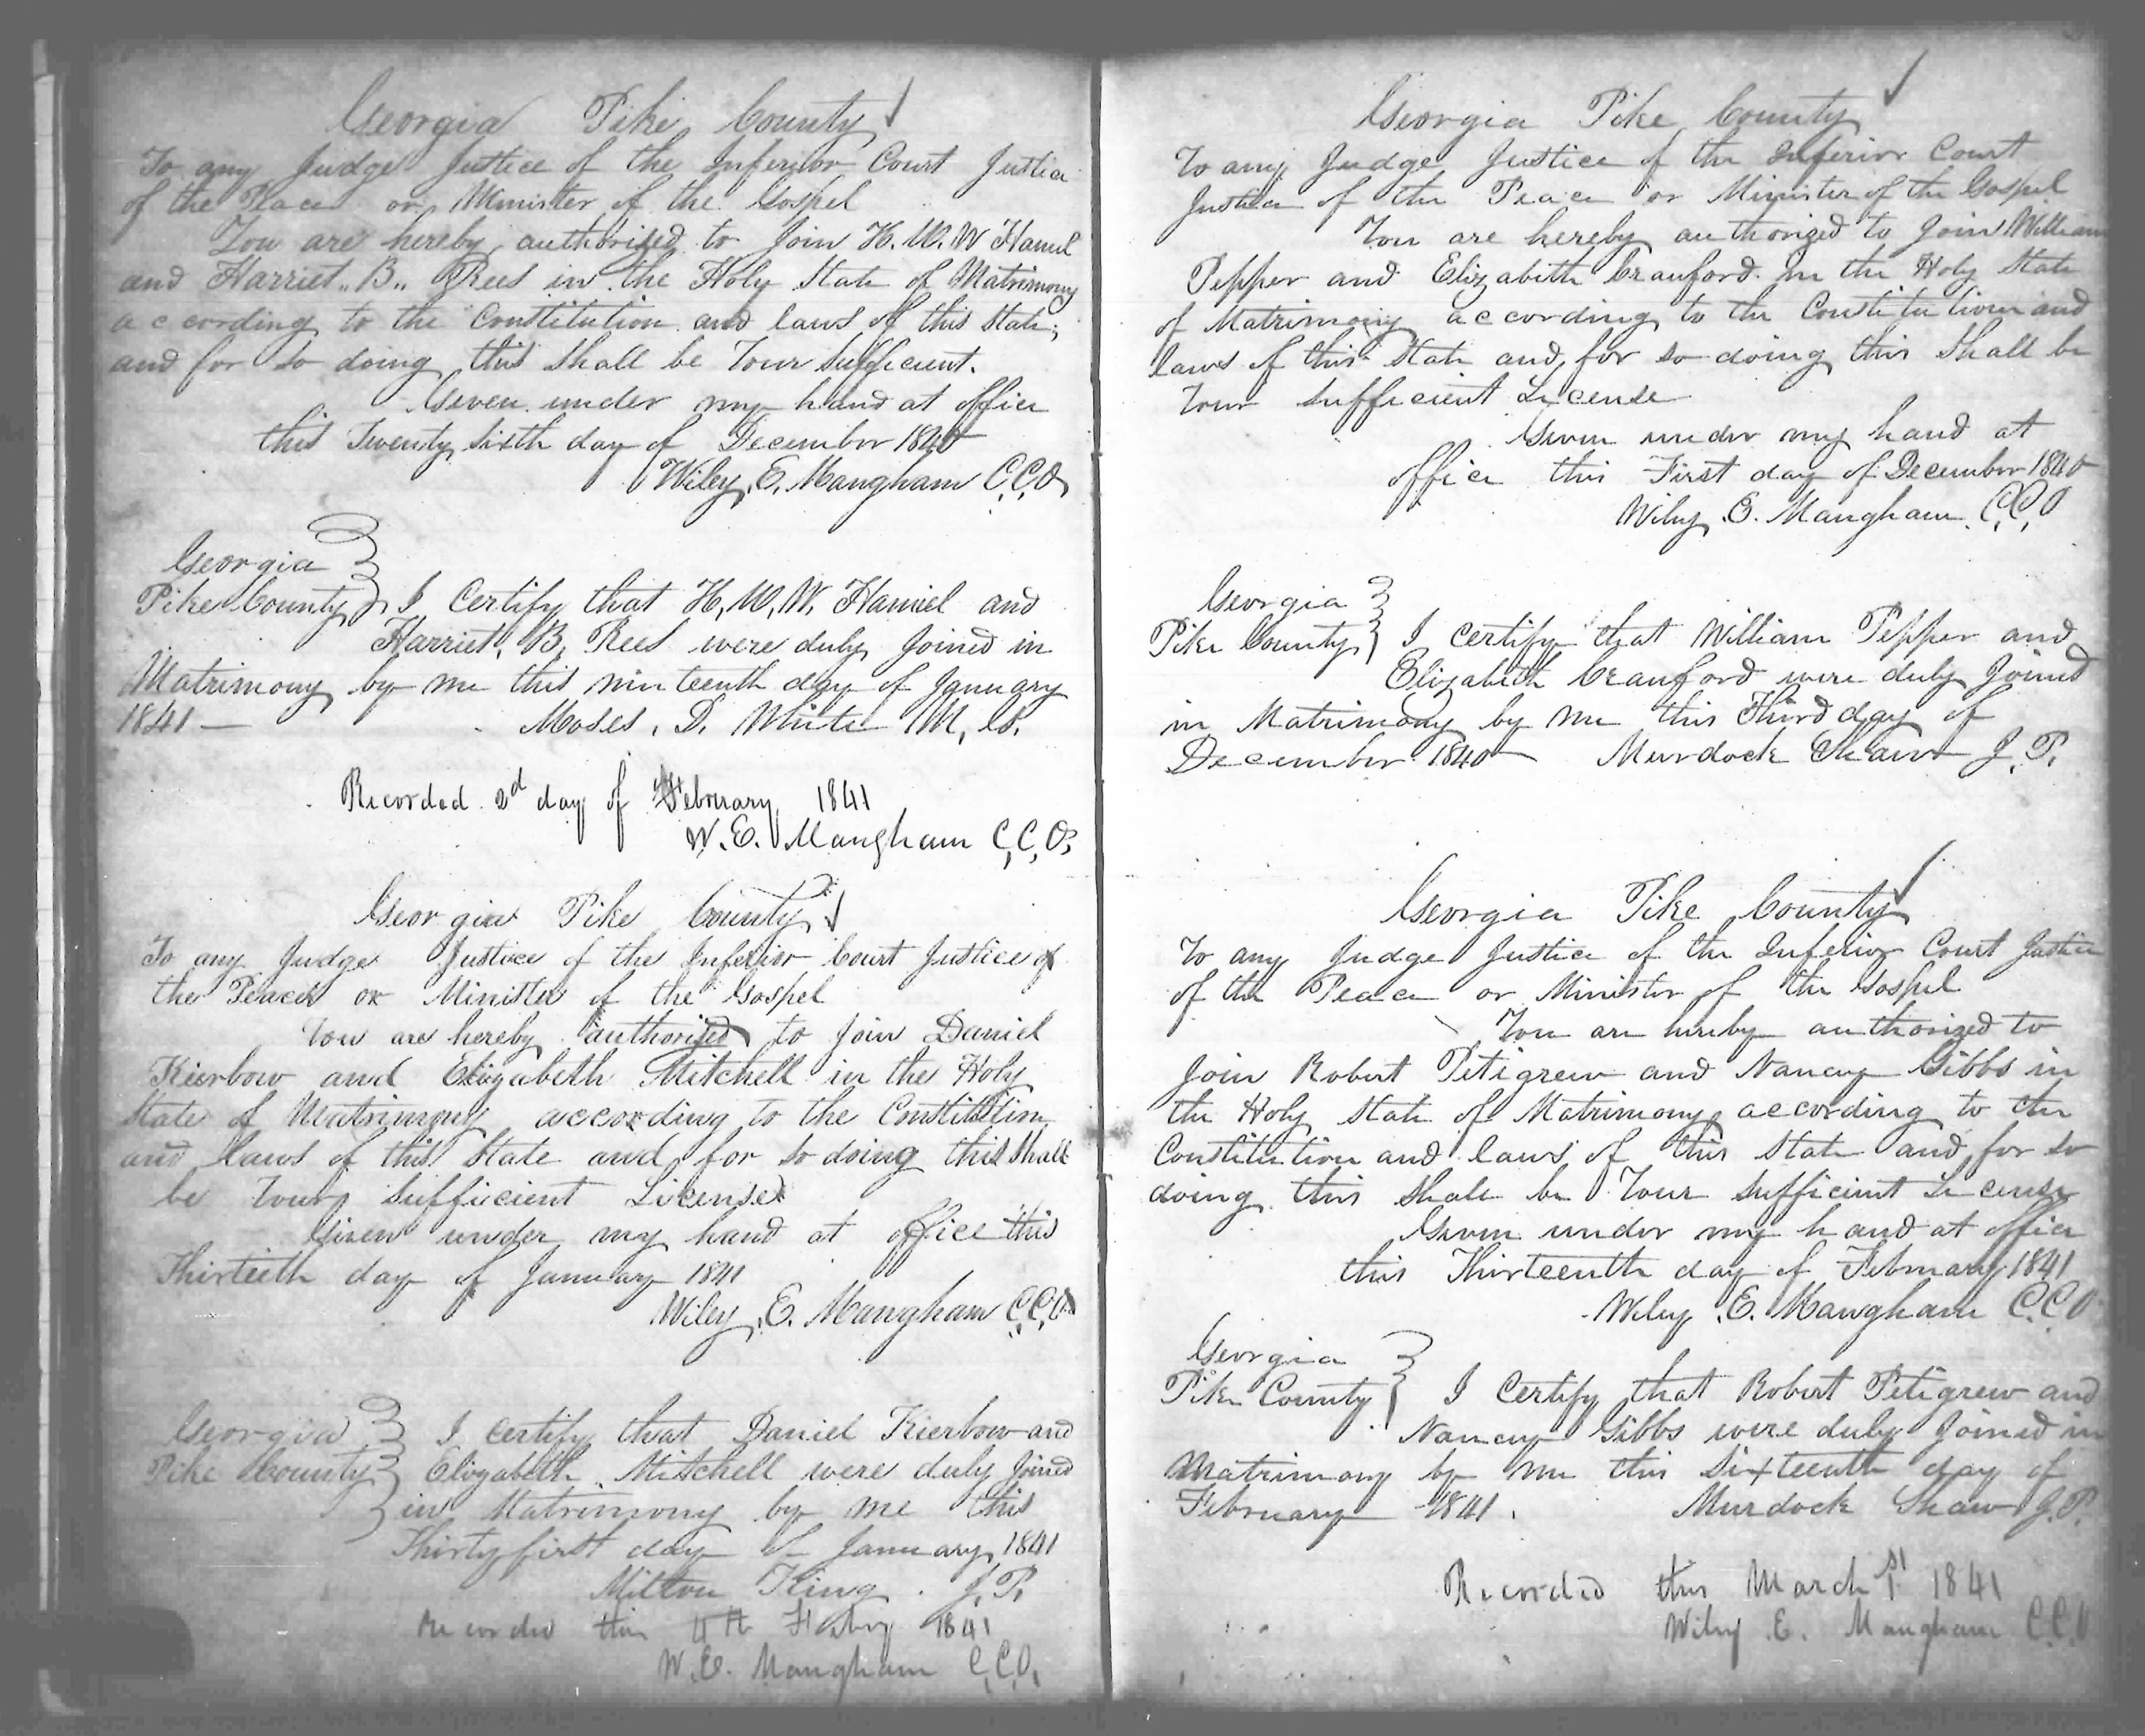 Georgia Pike County
To any Judge Justice of the Inferior Court Justice
of the Peace or Minister of the Gospel
You are hereby authorized to Join H. W. W Hamil
and Harriet „B„ Rees in the Holy State of Matrimony
according to the Constitution and laws of this State;
and for so doing this Shall be Your Sufficient.
Given under my hand at office
this Twenty Sixth day of December 1840
Wiley, E, Mangham C,C,O,
Georgia
Pike County } I Certify that H, W, W, Hamiel and
Harriet, B, Rees were duly Joined in
Matrimony by me this ninteenth day of January
1841 — Moses, D. White M, G.
Recorded 2d day of February 1841
W. E. Mangham C,C,O,
Georgia Pike County
To any Judge Justice of the Inferior Court Justice of
the Peace or Minister of the Gospel
You are hereby authorized to Join Daniel
Kierbow and Elizabeth Mitchell in the Holy
State of Matrimony according to the Constitution
and laws of this State and for so doing this Shall
be Your Sufficient License
Given under my hand at office this
Thirtieth day of January 1841
Wiley, E. Mangham C,C,O
Georgia } I Certify that Daniel Kierbow and
Pike County } Elizabeth Mitchell were duly Joined
in Matrimony by me this
Thirty first day of January 1841
Milton King . J, P,
Recorded this 4th Feby 1841
W. E. Mangham C,C,O,
Georgia Pike County
To any Judge Justice of the Inferior Court
Justice of the Peace or Minister of the Gospel
You are hereby authorized to Join William
Pepper and Elizabeth Crauford In the Holy State
of Matrimony according to the Constitution and
laws of this State and for so doing this Shall be
Your Sufficient License
Given under my hand at
office this First day of December 1840
Wiley, E. Mangham C,C,O
Georgia
Pike County } I Certify that William Pepper and
Elizabeth Crauford were duly Joined
in Matrimony by me this Third day of
December 1840 Murdock Shaw J, P,
Georgia Pike County
To any Judge Justice of the Inferior Court Justice
of the Peace or Minister of the Gospel
You are hereby authorized to
Join Robert Petigrew and Nancy Gibbs in
the Holy State of Matrimony according to the
Constitution and laws of this State and for so
doing this Shall be Your Sufficient License
Given under my hand at office
this Thirteenth day of February 1841
Wiley, E. Mangham C.C.O
Georgia
Pike County } I Certify that Robert Petigrew and
Nancy Gibbs were duly Joined in
Matrimony by me this Sixteenth day of
February 1841. Murdock Shaw J.P.
Recorded this March 1st 1841
Wiley E. Mangham C.C.O